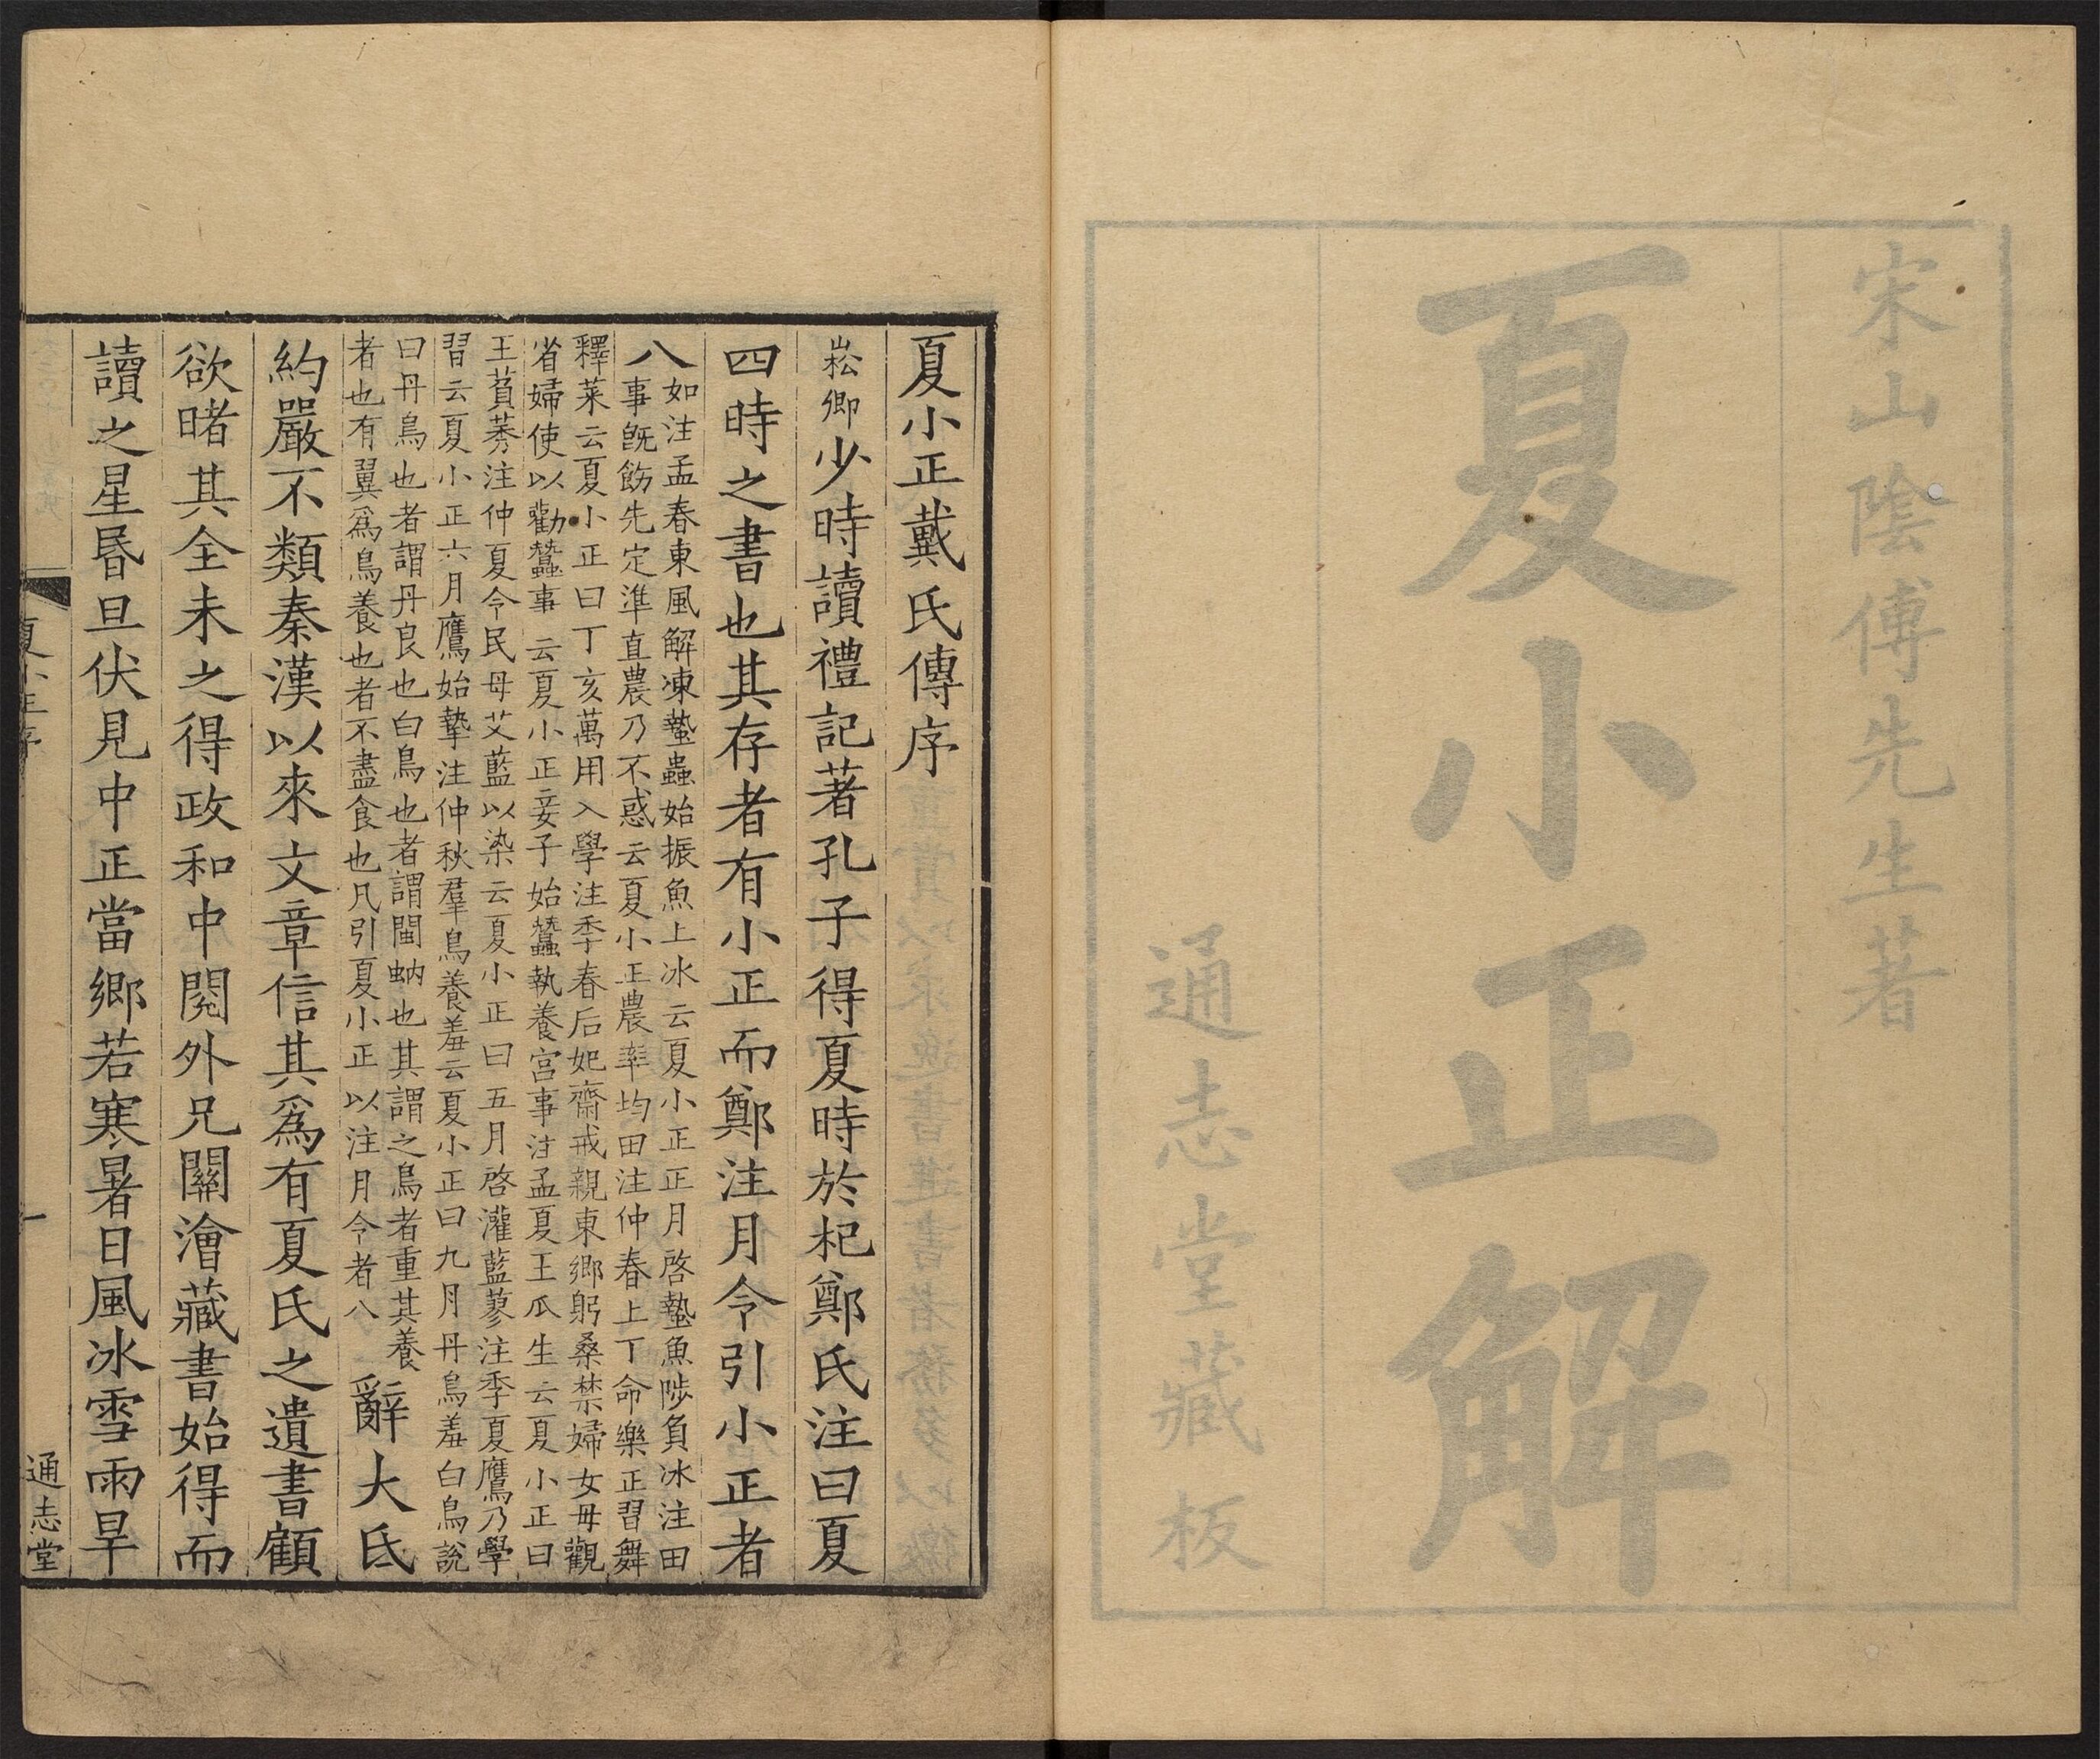 宋山陰傅先生著
夏小正解
通志堂藏板
夏小正戴氏傳序
崧卿少時讀禮記著孔子得夏時於杞鄭氏注曰夏
四時之書也其存者有小正而鄭注月令引小正者
八
如注孟春東風解凍蟄蟲始振魚上冰云夏小正正月啓蟄魚陟負冰注田
事旣飭先定準直農乃不惑云夏小正農率均田注仲春上丁命樂正習舞
釋菜云夏小正曰丁亥萬用入學注季春后妃齋戒親東鄉躬桑禁婦女毋觀
省婦使以勸蠶事云夏小正妾子始蠶執養宮事注孟夏王瓜生云夏小正曰
王萯莠注仲夏令民毋艾藍以染云夏小正曰五月啓灌藍蓼注季夏鷹乃學
習云夏小正六月鷹始摯注仲秋羣鳥養羞云夏小正曰九月丹鳥羞白鳥說
曰丹鳥也者謂丹良也白鳥也者謂閩蚋也其謂之鳥者重其養
者也有翼爲鳥養也者不盡食也凡引夏小正以注月令者八
辭大氐
約嚴不類秦漢以來文章信其爲有夏氏之遺書顧
欲睹其全未之得政和中閱外兄關澮藏書始得而
讀之星昬旦伏見中正當鄉若寒暑日風冰雪雨旱
夏小正序
一
通志堂